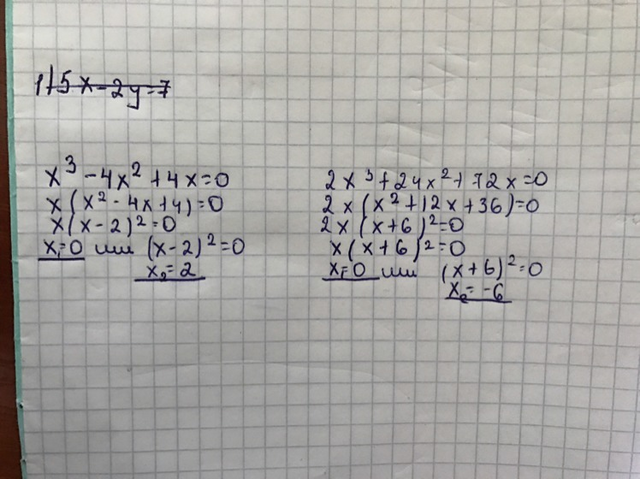 1) 5x-2y=7
x³-4x²+4x=0
x(x²-4x+4)=0
x(x-2)²=0
x₁=0 или (x-2)²=0
x₂=2
2x³+24x²+72x=0
2x(x²+12x+36)=0
2x(x+6)²=0
x(x+6)²=0
x₁=0 или (x+6)²=0
x₂=-6